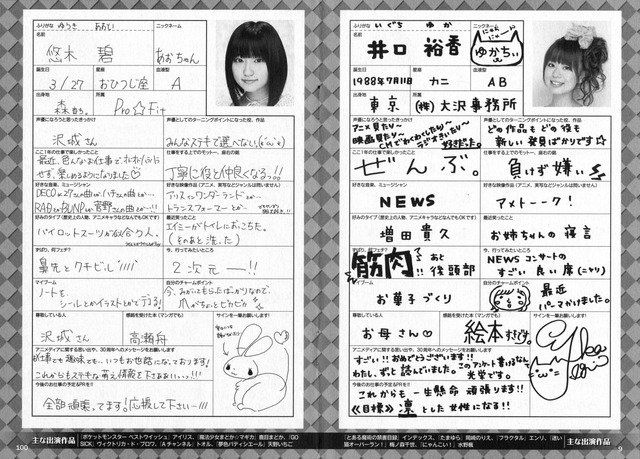 ふりがな ゆうき あおい
ニックネーム
名前
悠木 碧
あおちゃん
誕生日
星座
血液型
3/27
おひつじ座
A
出身地
所属
森から。
Pro☆Fit
声優になろうと思ったきっかけ
声優としてのターニングポイントになった役、作品
沢城さん
みんなステキで選べない!
ここ1年の仕事で楽しかったこと
仕事をする上でのモットー、座右の銘
丁寧に役と仲良くなる。!!
好きな音楽、ミュージシャン
好きな映像作品(アニメ、実写などジャンルは問いません)
アリスインワンダーランドが…
トランスフォーマーとか…
好みのタイプ(歴史上の人物、アニメキャラなどなんでもOKです)
最近笑ったこと
パイロットスーツが似合う人。
エイミーがトイレにおちた。
(そのあと洗った)
ずばり、何フェチ?
今、行ってみたいところは?
鼻先とクチビル
2次元ー!!
マイブーム
自分のチャームポイント
ノートを、
シールとかイラストとかでデコる!
尊敬している人
感銘を受けた本(マンガでも)
サインを一筆お願いします!
沢城さん
高瀬舟
アニメディアに関する思い出や、30周年へのメッセージをお願いします
お仕事でも趣味でも…いつもお世話になっております!
今後のお仕事の予定&PRを!!
全部頑張ってます!応援して下さい…!!!
100
主な出演作品
『ポケットモンスター ベストウイッシュ』アイリス、『魔法少女まどか☆マギカ』鹿目まどか、『GOSICK』ヴィクトリカ・ド・ブロワ、『Aチャンネル』トオル、『夢色パティシエール』天野いちご
ふりがな いぐち ゆか
ニックネーム
名前
井口 裕香
にゃんにゃん
ゆかちぃ
誕生日
星座
血液型
1988年7月11日
カニ
AB
出身地
所属
東京
(株)大沢事務所
声優になろうと思ったきっかけ
声優としてのターニングポイントになった役、作品
アニメ見たり〜
映画見たり〜
CMでわくわくしたり〜
ラジオきいたり〜
好きだった。
どの作品もどの役も
新しい発見ばかりです☆
ここ1年の仕事で楽しかったこと
仕事をする上でのモットー、座右の銘
ぜんぶ。
負けず嫌い
好きな音楽、ミュージシャン
好きな映像作品(アニメ、実写などジャンルは問いません)
NEWS
アメトーーク!
好みのタイプ(歴史上の人物、アニメキャラなどなんでもOKです)
最近笑ったこと
増田貴久
お姉ちゃんの寝言
ずばり、何フェチ?
今、行ってみたいところは?
筋肉 あと後頭部
NEWS コンサートの
すごい良い席(ニヤリ)
マイブーム
自分のチャームポイント
お菓子づくり
最近
パーマかけました。
尊敬している人
感銘を受けた本(マンガでも)
サインを一筆お願いします!
お母さん♡
絵本すきです。
アニメディアに関する思い出や、30周年へのメッセージをお願いします
すごい!!おめでとうございます!!
わたし、ずっと読んでいました。このアンケート書けるなんて
光栄です。
今後のお仕事の予定&PRを!!
これからも一生懸命頑張ります!!
《目標》凛とした女性になる!!
主な出演作品
『とある魔術の禁書目録』インデックス、『たまゆら』岡崎のりえ、『フラクタル』エンリ、『迷い猫オーバーラン!』梅ノ森千世、『にゃんこい!』水野楓